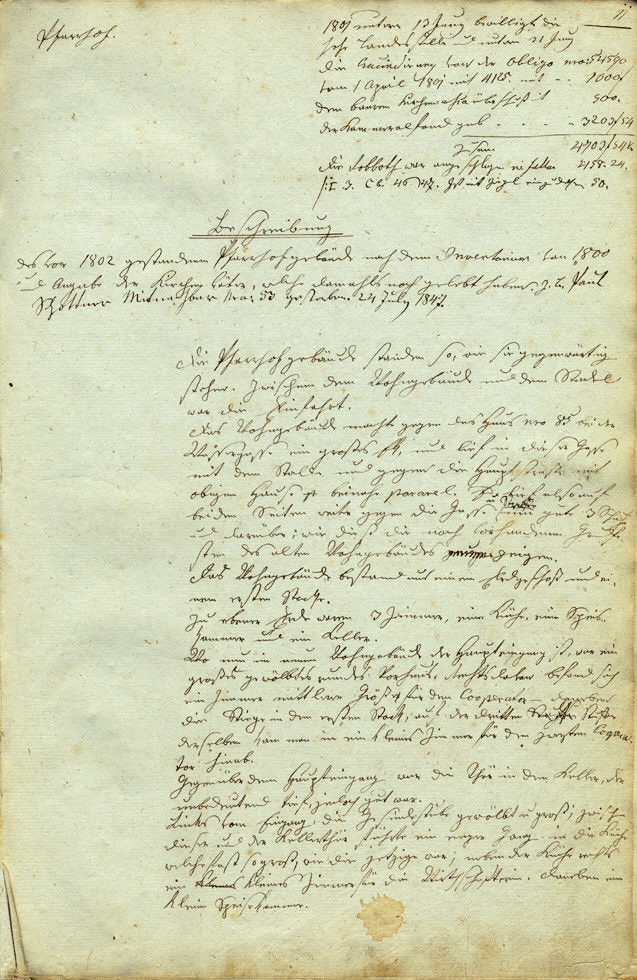 11
Pfarrhof.
1801 unterm 13 Juny bewilligte die
hohe Landesstelle und unterm 21 Juny
die von der Obligo nro 54590
vom 1 April 1801 mit 4125. mit - 1000.
dem baaren Kirchen mit 500.
der Kammeralfond gab - - - - 3203/54
Zusam 4703/54 k
die Robboth war angeschlagen 458. 24.
50.
Beschreibung
des vor 1802 gestandenen Pfarrhofgebäude nach dem Inventarium von 1800
und Angabe der Kirchenväter, welche damahls noch gelebt haben. z. B. Paul
Schottner nro 53 gestorben. 24 July 1847.
Die Pfarrhofgebäude standen so, wie sie gegenwärtig
stehen. Zwischen dem Wohngebäude und dem Stadel
war die Einfahrt.
Das Wohngebäude machte gegen das Haus nro 85 bei der
Wassergasse ein großes Eck, und lief in dieser Gasse
mit dem Stalle und gegen die Hauptstrasse mit
obigen Hause beinahe pararel. Es lief also auf
beiden Seiten weiter gegen die Gasse gute 3 Schuh
und darüber; wie dieß die noch vorhandenen
sten des alten Wohngebäudes zeigen.
Das Wohngebäude bestand aus einem Erdgeschoß und ei-
nem ersten Stocke.
Zu ebener Erde waren 3 Zimmer, eine Küche, eine Speis-
kammer und ein Keller.
Wo nun im neuen Wohngebäude der Haupteingang ist, war ein
großes gewölbtes rundes Vorhaus, Rechts davon befand sich
ein Zimmer mittlere Größe für den Cooperator - daneben
die Stiege in den ersten Stock; auf der dritten Stuffe
derselben kam man in ein kleines Zimmer für den zweiten Coopera-
tor hinab.
Gegenüber dem Haupteingang war die Thür in den Keller, der
unbedeutend tief, jedoch gut war.
Links vom Eingang, die Gesindestube gewölbt u groß; zwisch
dieser und der Kellerthür führte ein enger Gang in die Küche
welche fast so groß, wie die jetzige war; neben der Küche rechts
ein kleines Zimmer für die Wirthschafterin. Daneben ein
klein Speiskammer.